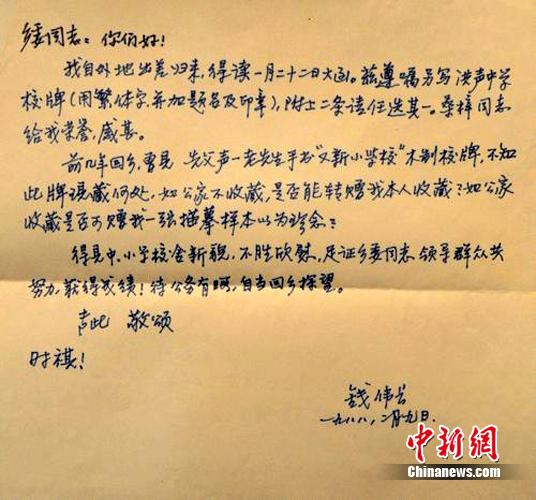 乡委同志：你们好！
我自外地出差归来，得读一月二十二日大函。兹遵嘱另写洪声中学
校牌（用繁体字，并加题名及印章），附上二条请任选其一。桑梓同志
给我荣誉，感甚。
前几年回乡，曾见 先父声一老先生手书“又新小学校”木制校牌，不知
此牌现藏何处，如公家不收藏，是否能转赠我本人收藏？如公家
收藏是否可赠我一张描摹样本以为珍念？
得见中、小学校舍新貌，不胜欣慰，足证乡委同志领导群众共
努力，获得成绩！待公务有暇，自当回乡探望。
专此 敬颂
时祺！
钱伟长
一九八八，二月九日。
中新网
Chinanews.com